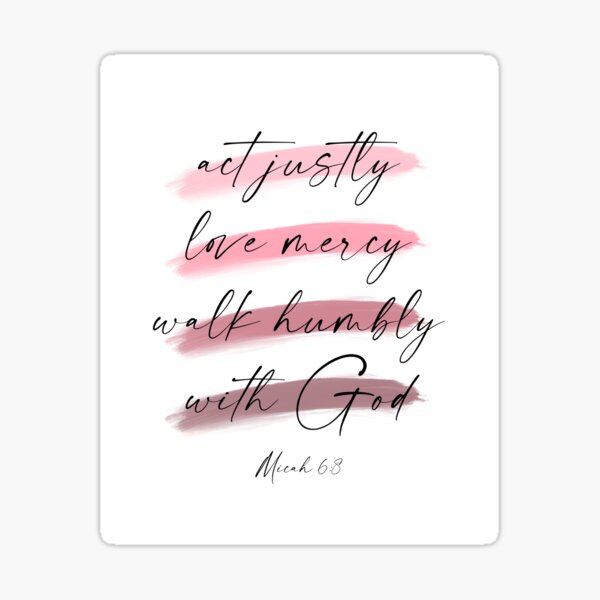 act justly
love mercy
walk humbly
with God
Micah 6:8